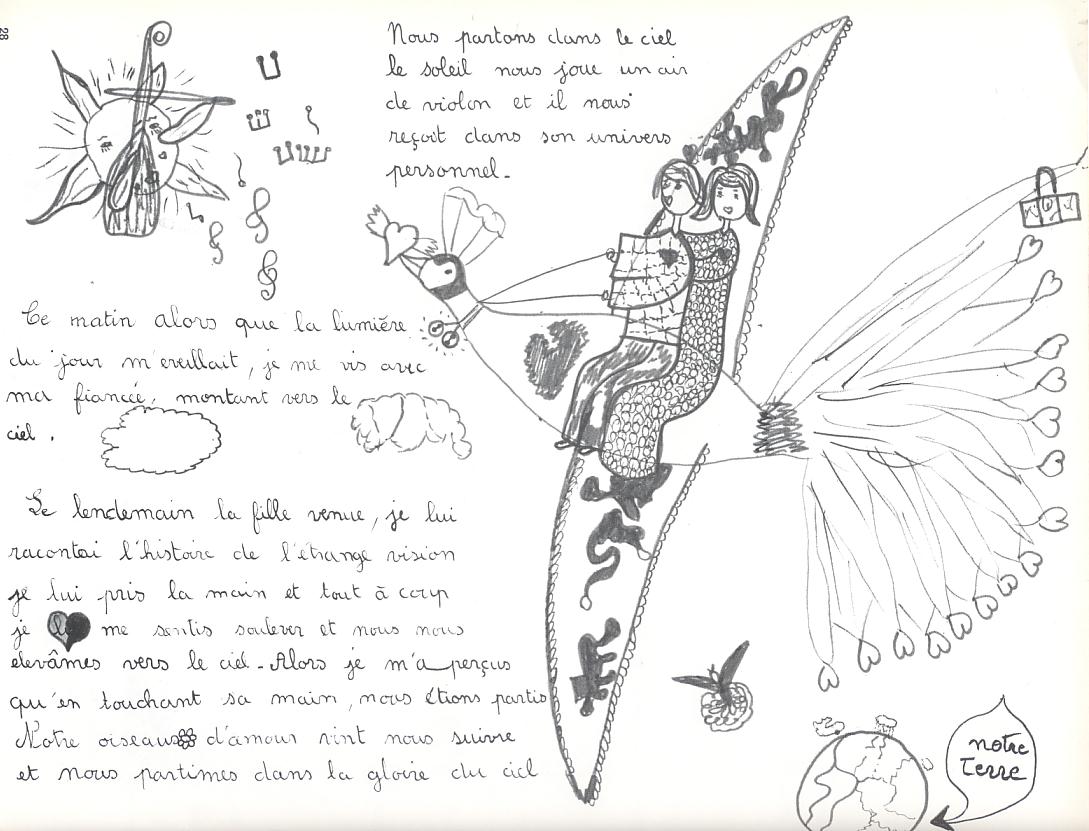 28
Nous partons dans le ciel
le soleil nous joue un air
de violon et il nous
reçoit dans son univers
personnel.
Ce matin alors que la lumière
du jour m'ereillait, je me vis avec
ma fiancée, montant vers le
ciel.
Le lendemain la fille venue, je lui
racontai l'histoire de l'étrange vision
je lui pris la main et tout à coup
je me sentis soulever et nous nous
élevâmes vers le ciel. Alors je m'a perçus
qu'en touchant sa main, nous étions partis
Notre oiseau d'amour vint nous suivre
et nous partimes dans la gloire du ciel
notre
Terre